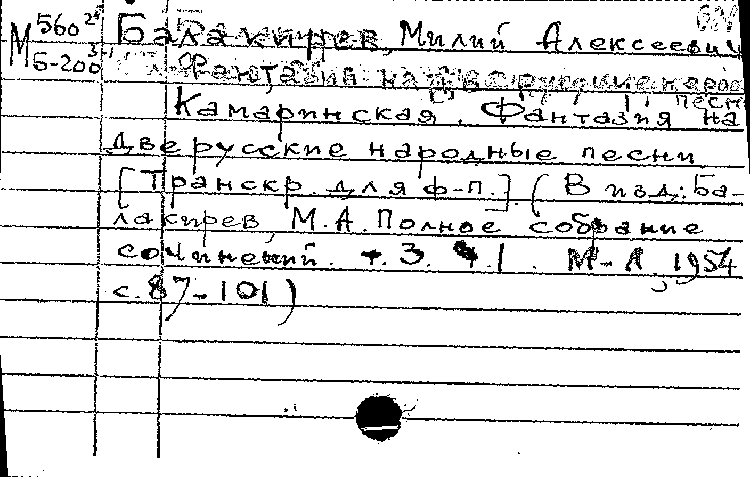 М 560 Балакирев, Милий Алексеевич
Б-200 Фантазия на две русские народ
песн
Камаринская. Фантазия на
две русские народные песни
[Транскр. для ф-п.] (В изд: Ба-
лакирев, М.А. Полное собрание
сочинений. т.3. ч.1. М-Л, 1954
с.87-101)